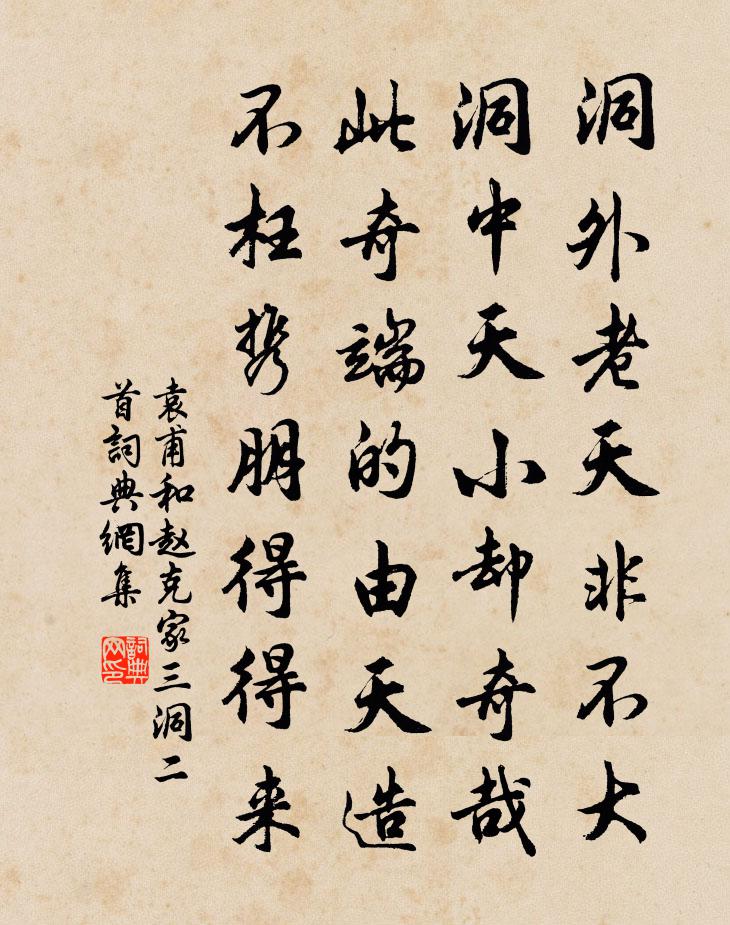 洞外老天非不大
洞中天小却奇哉
此奇端的由天造
不枉携朋得得来
袁甫和赵克家三洞二
首詞典網集
詞典
网印